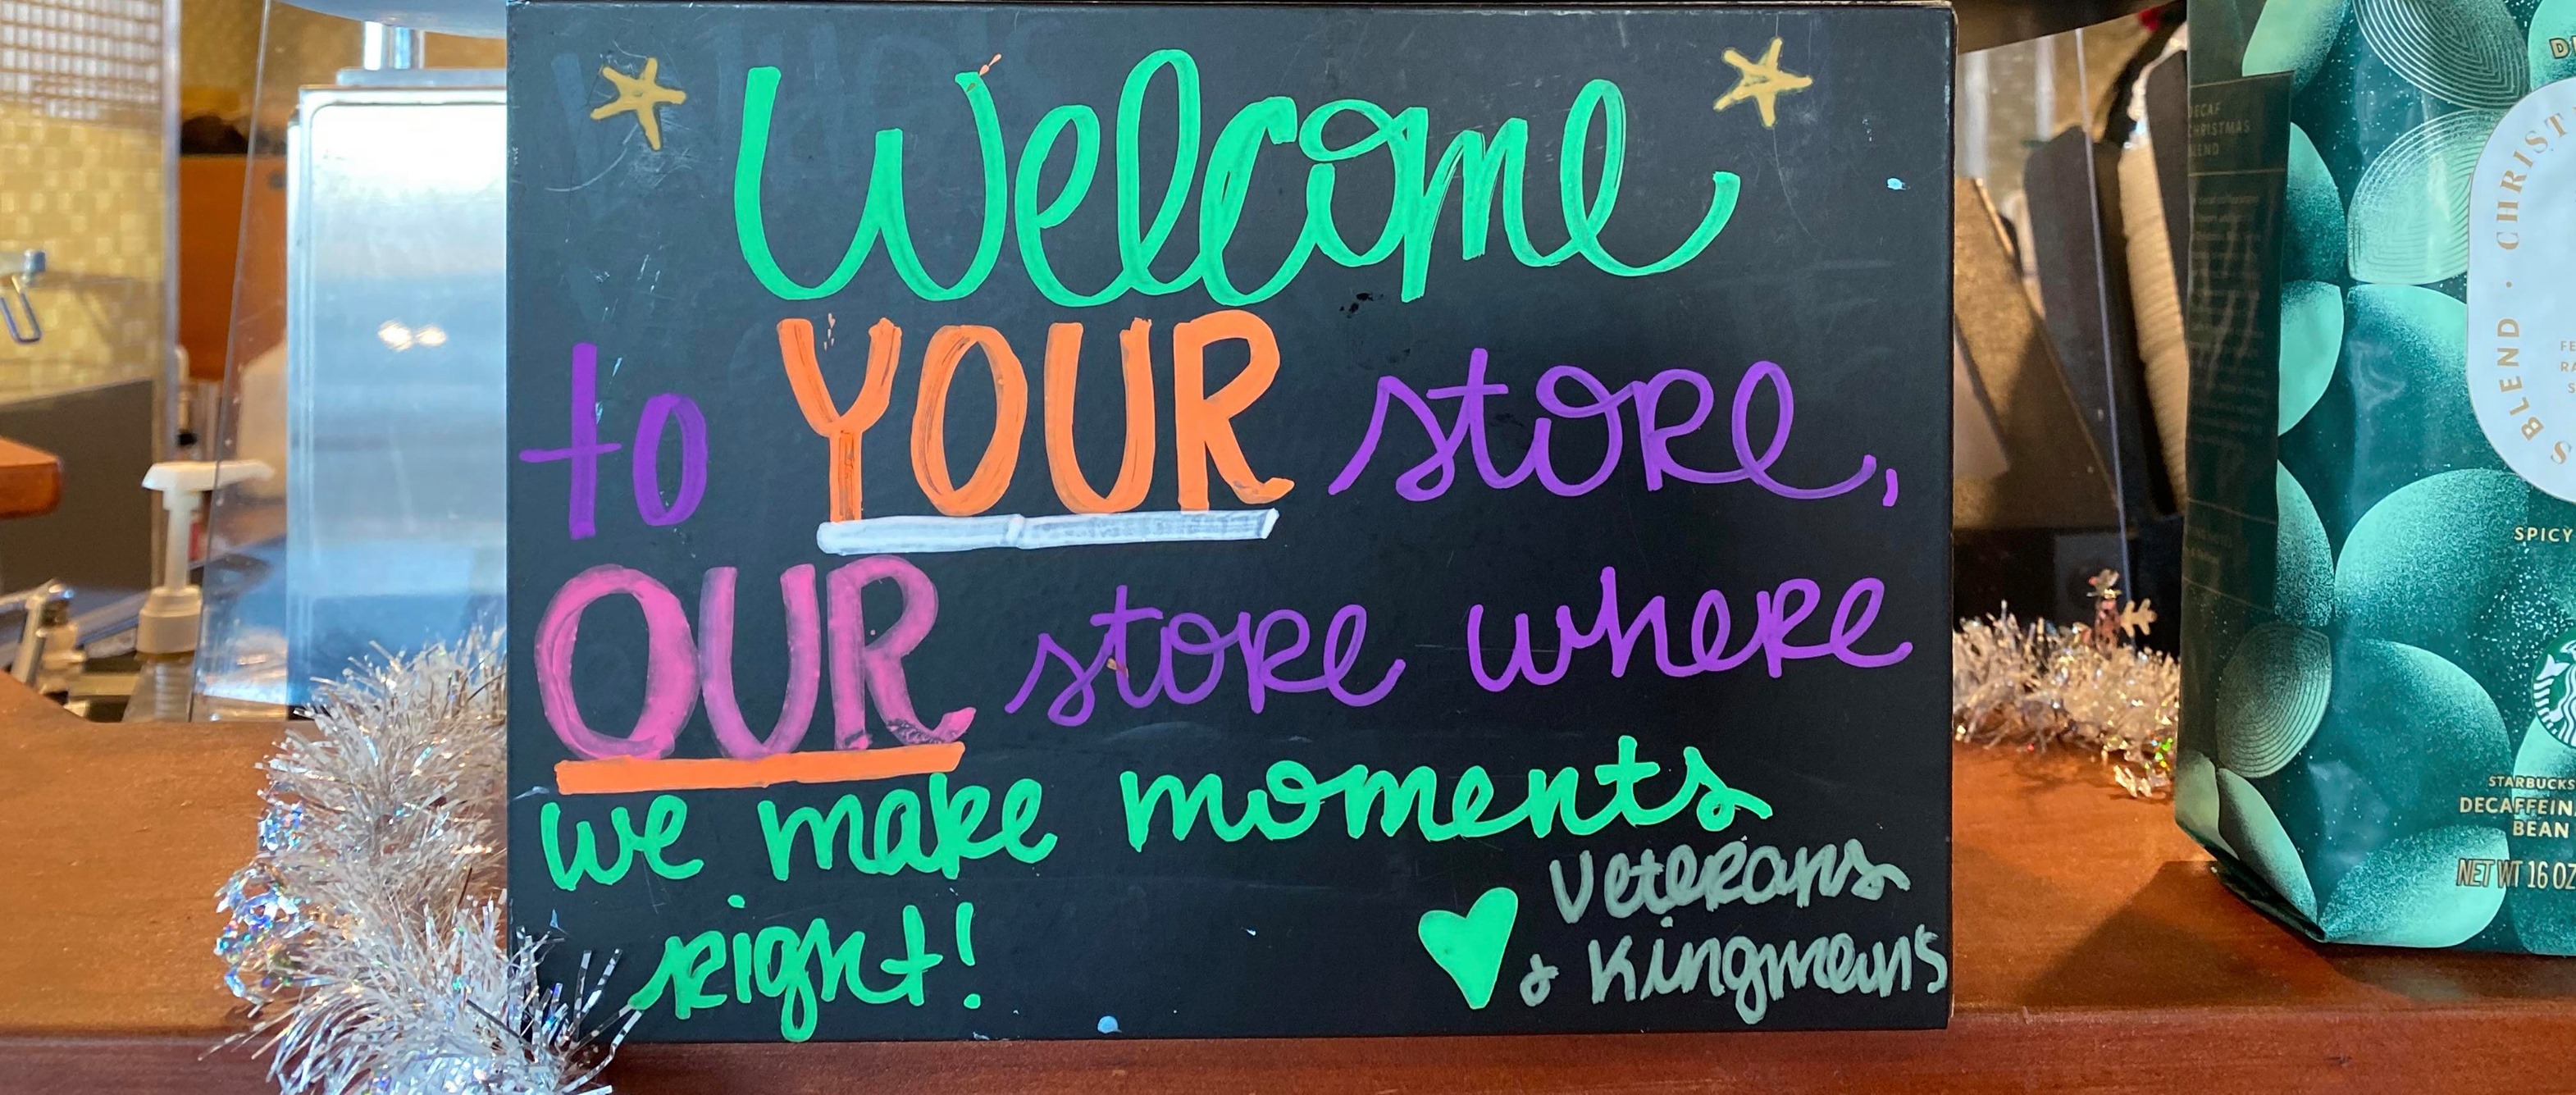 Welcome
to YOUR store,
OUR store where
we make moments
right!
Veterans
& Kingman's
DECAF
CHRISTMAS
BLEND
BLEND · CHRIST
SPICY
STARBUCKS
DECAFFEIN
BEAN
NET WT 16 OZ